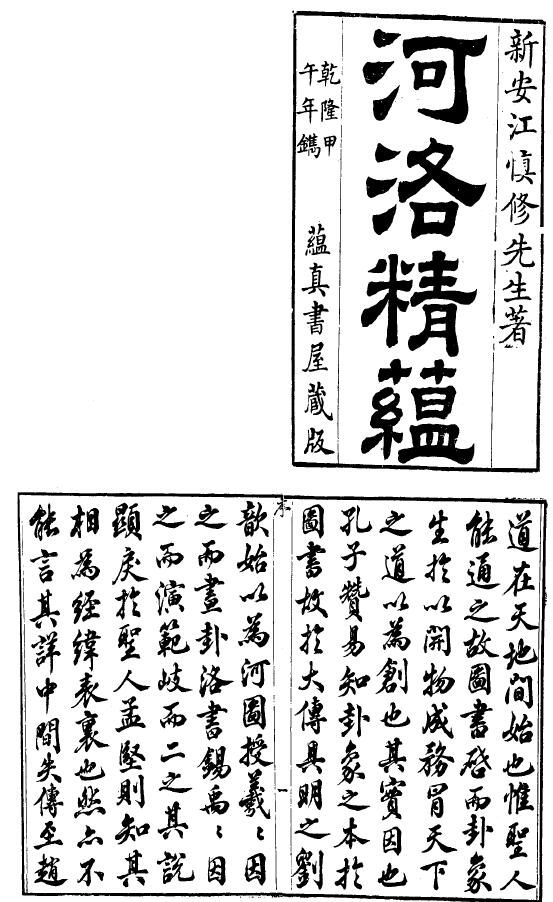 新安江慎修先生著
河洛精藴
乾隆甲
午年鐫
藴真書屋藏版
道在天地間始也惟聖人
能通之故圖書啓而卦象
生於以開物成務冒天下
之道以為創也其實因也
孔子贊易知卦象之本於
圖書故於大傳具明之劉
一
歆始以為河圖授羲〻因
之而畫卦洛書錫禹〻因
之而演範歧而二之其說
顯戾於聖人孟堅則知其
相為經緯表裏也然亦不
能言其詳中間失傳至趙